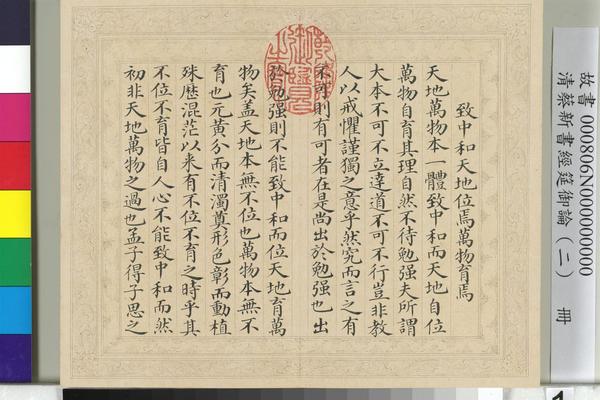 致中和天地位焉萬物育焉
天地萬物本一體致中和而天地自位
萬物自育其理自然不待勉强夫所謂
大本不可不立達道不可不行豈非教
人以戒懼謹獨之意乎然究而言之有
不可則有可者在是尚出於勉强也出
於勉强則不能致中和而位天地育萬
物矣盖天地本無不位也萬物本無不
育也元黃分而清濁奠形色彰而動植
殊歷混茫以來有不位不育之時乎其
不位不育皆自人心不能致中和而然
初非天地萬物之過也孟子得子思之
故書000806N000000000
清蔡新書經筵御論（二） 冊